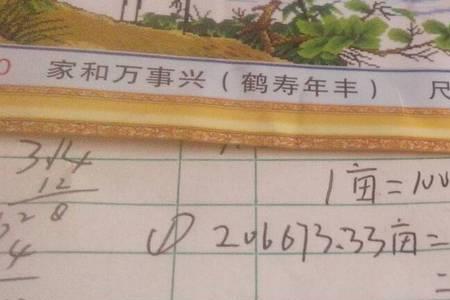 家和万事兴(鹤寿年丰) 尺
314
12
628
4
1亩=100
① 206673.33亩=
=